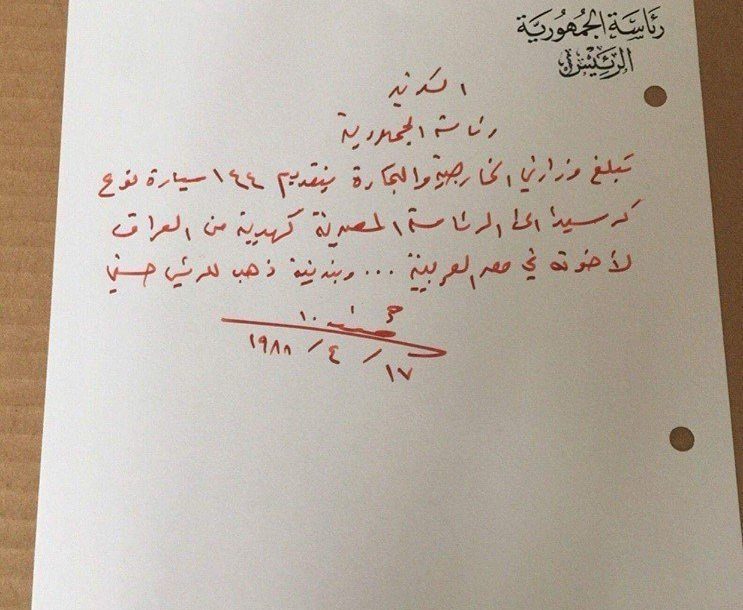 رئاسة الجمهورية
الرئيس
رئاسة الجمهورية
تبلغ وزارتي الخارجية والتجارة بتقديم ١٤٤ سيارة نوع
كرسيدا الى الرئاسة المصرية كهدية من العراق
لأخوته في مصر العربية ... وبندقية ذهب للرئيس حسني
١٧ / ٤ / ١٩٨٨